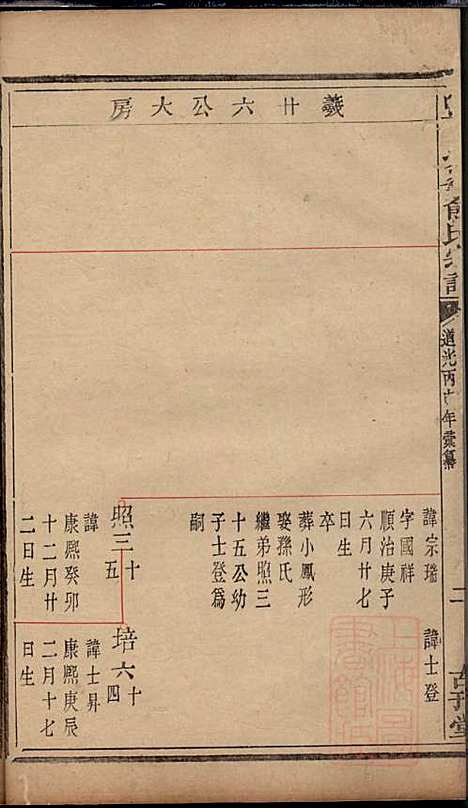 羲廿六公大房
俞氏宗譜
道光丙年彙纂
二
諱宗瑞
字國祥
順治庚子
六月廿七
日生
卒
葬小鳳形
娶孫氏
繼弟照三
十五公幼
子士登爲
嗣
照三十五
諱
康熙癸卯
十二月廿
二日生
諱士登
培六十四
諱士昇
康熙庚辰
二月十七
日生
上海圖書館藏